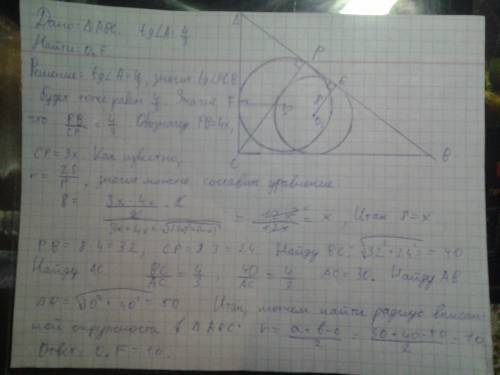 Дано: △ABC. tg∠A = 4/3
Найти: O₁F.
Решение: tg∠A = 4/3, значит tg∠PCB
будет тоже равен 4/3. Значит
что PB/CP = 4/3 Обозначу PB=4x,
CP=3x. Как известно,
r = 2S/P, значит можно составить уравнение
= x, Итак 8=x
PB = 8·4=32, CP = 8·3=24. Найду BC: √32²+24² = 40
Найду AC BC/AC = 4/3 AC=30. Найду AB
AB = √30²+40² = 50 Итак, можем найти радиус вписан-
ной окружности в △ABC: r = a+b-c/2 = 30+40-50/2 = 10
Ответ: O₁F=10.
A
P
F
C
B